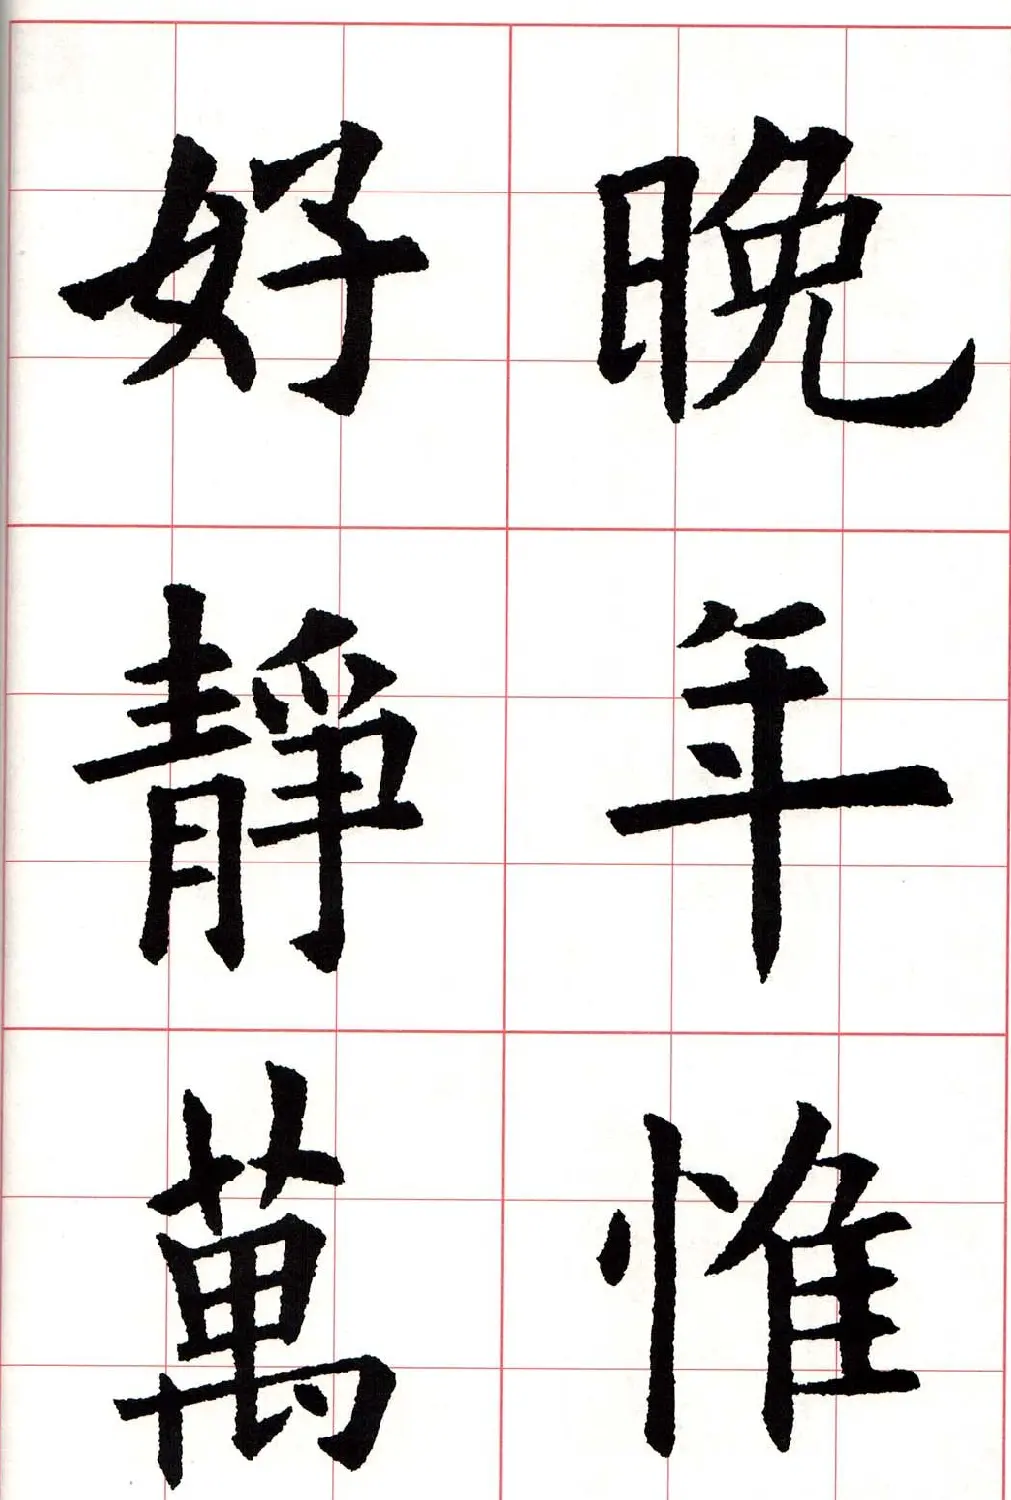 晚年惟
好靜萬